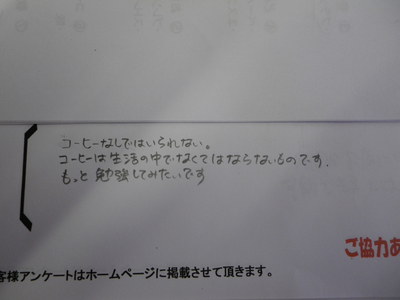 コーヒーなしではいられない。
コーヒーは生活の中でなくてはならないものです.
もっと勉強してみたいです
ご協力あ
客様アンケートはホームページに掲載させて頂きます。